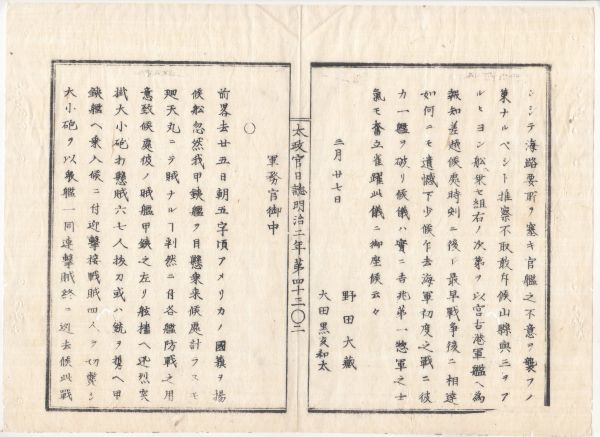 シシテ海路要所ヲ塞キ官艦之不意ヲ襲フノ
策ナルベシト推察不取敢斥候山縣與三ヲフ
ルヒヨン船乗セ組右ノ次第ヲ以宮古港軍艦ヘ為
報知差越候處時刻ニ後レ最早戦争後ニ相違
如何ニモ遺憾不少候乍去海軍初度之戦ニ彼
カ一艦ヲ破リ候儀ハ實ニ吉兆第一惣軍之士
氣モ奮立雀躍此儀ニ御座候云々
三月廿七日
野田大藏
大田黒亥和太
太政官日誌明治二年第四十三〇二
軍務官御中
〇
前畧去廿五日朝五字頃アメリカノ國旗ヲ揚
候船忽然我甲鉄艦ヲ目懸乗来候處計ラスモ
廻天丸ニテ賊ナルヿ判然ニ付各艦防戦之用
意致候處彼ノ賊艦甲鉄之左リ舷檣ヘ烈突
掛大小砲打懸賊六七人抜刀或ハ銃ヲ携ヘ甲
鉄艦ヘ乗入候ニ付迎撃接戦賊四人ヲ切斃シ
大小砲ヲ以襲艦一同連撃賊終ニ迯去候此戦